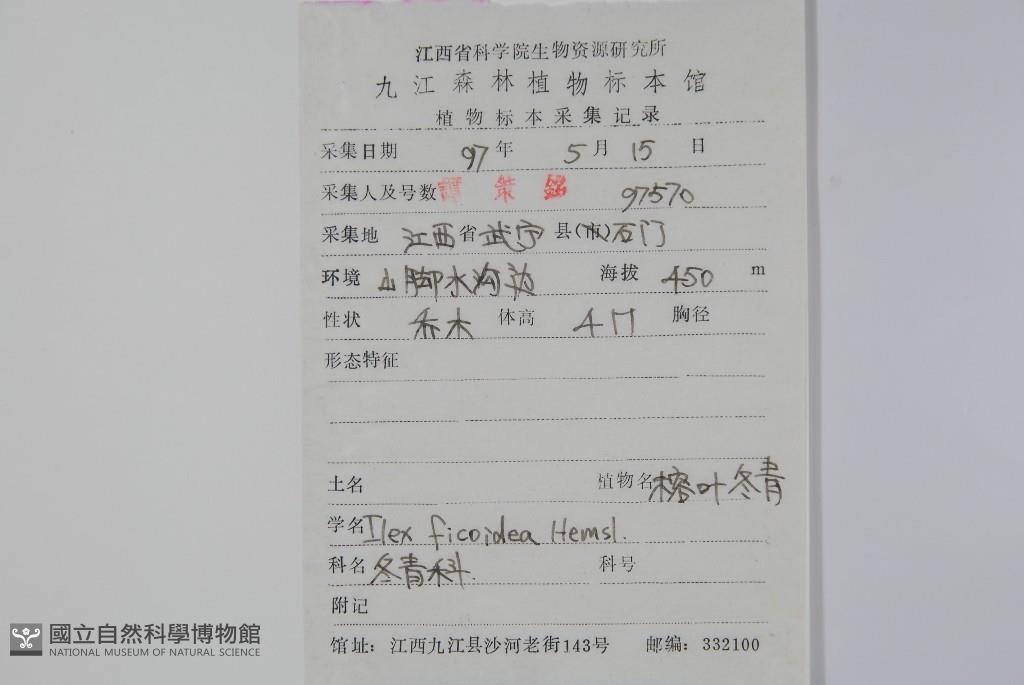 江西省科学院生物资源研究所
九江森林植物标本馆
植物标本采集记录
采集日期 97年 5月 15日
采集人及号数 譚策銘 97570
采集地 江西省武宁县(市)石门
环境 山脚水沟边 海拔 450 m
性状 乔木 体高 4m 胸径
形态特征
土名 植物名 榕叶冬青
学名 Ilex ficoidea Hemsl.
科名 冬青科. 科号
附记
馆址：江西九江县沙河老街143号 邮编：332100
國立自然科學博物館
NATIONAL MUSEUM OF NATURAL SCIENCE